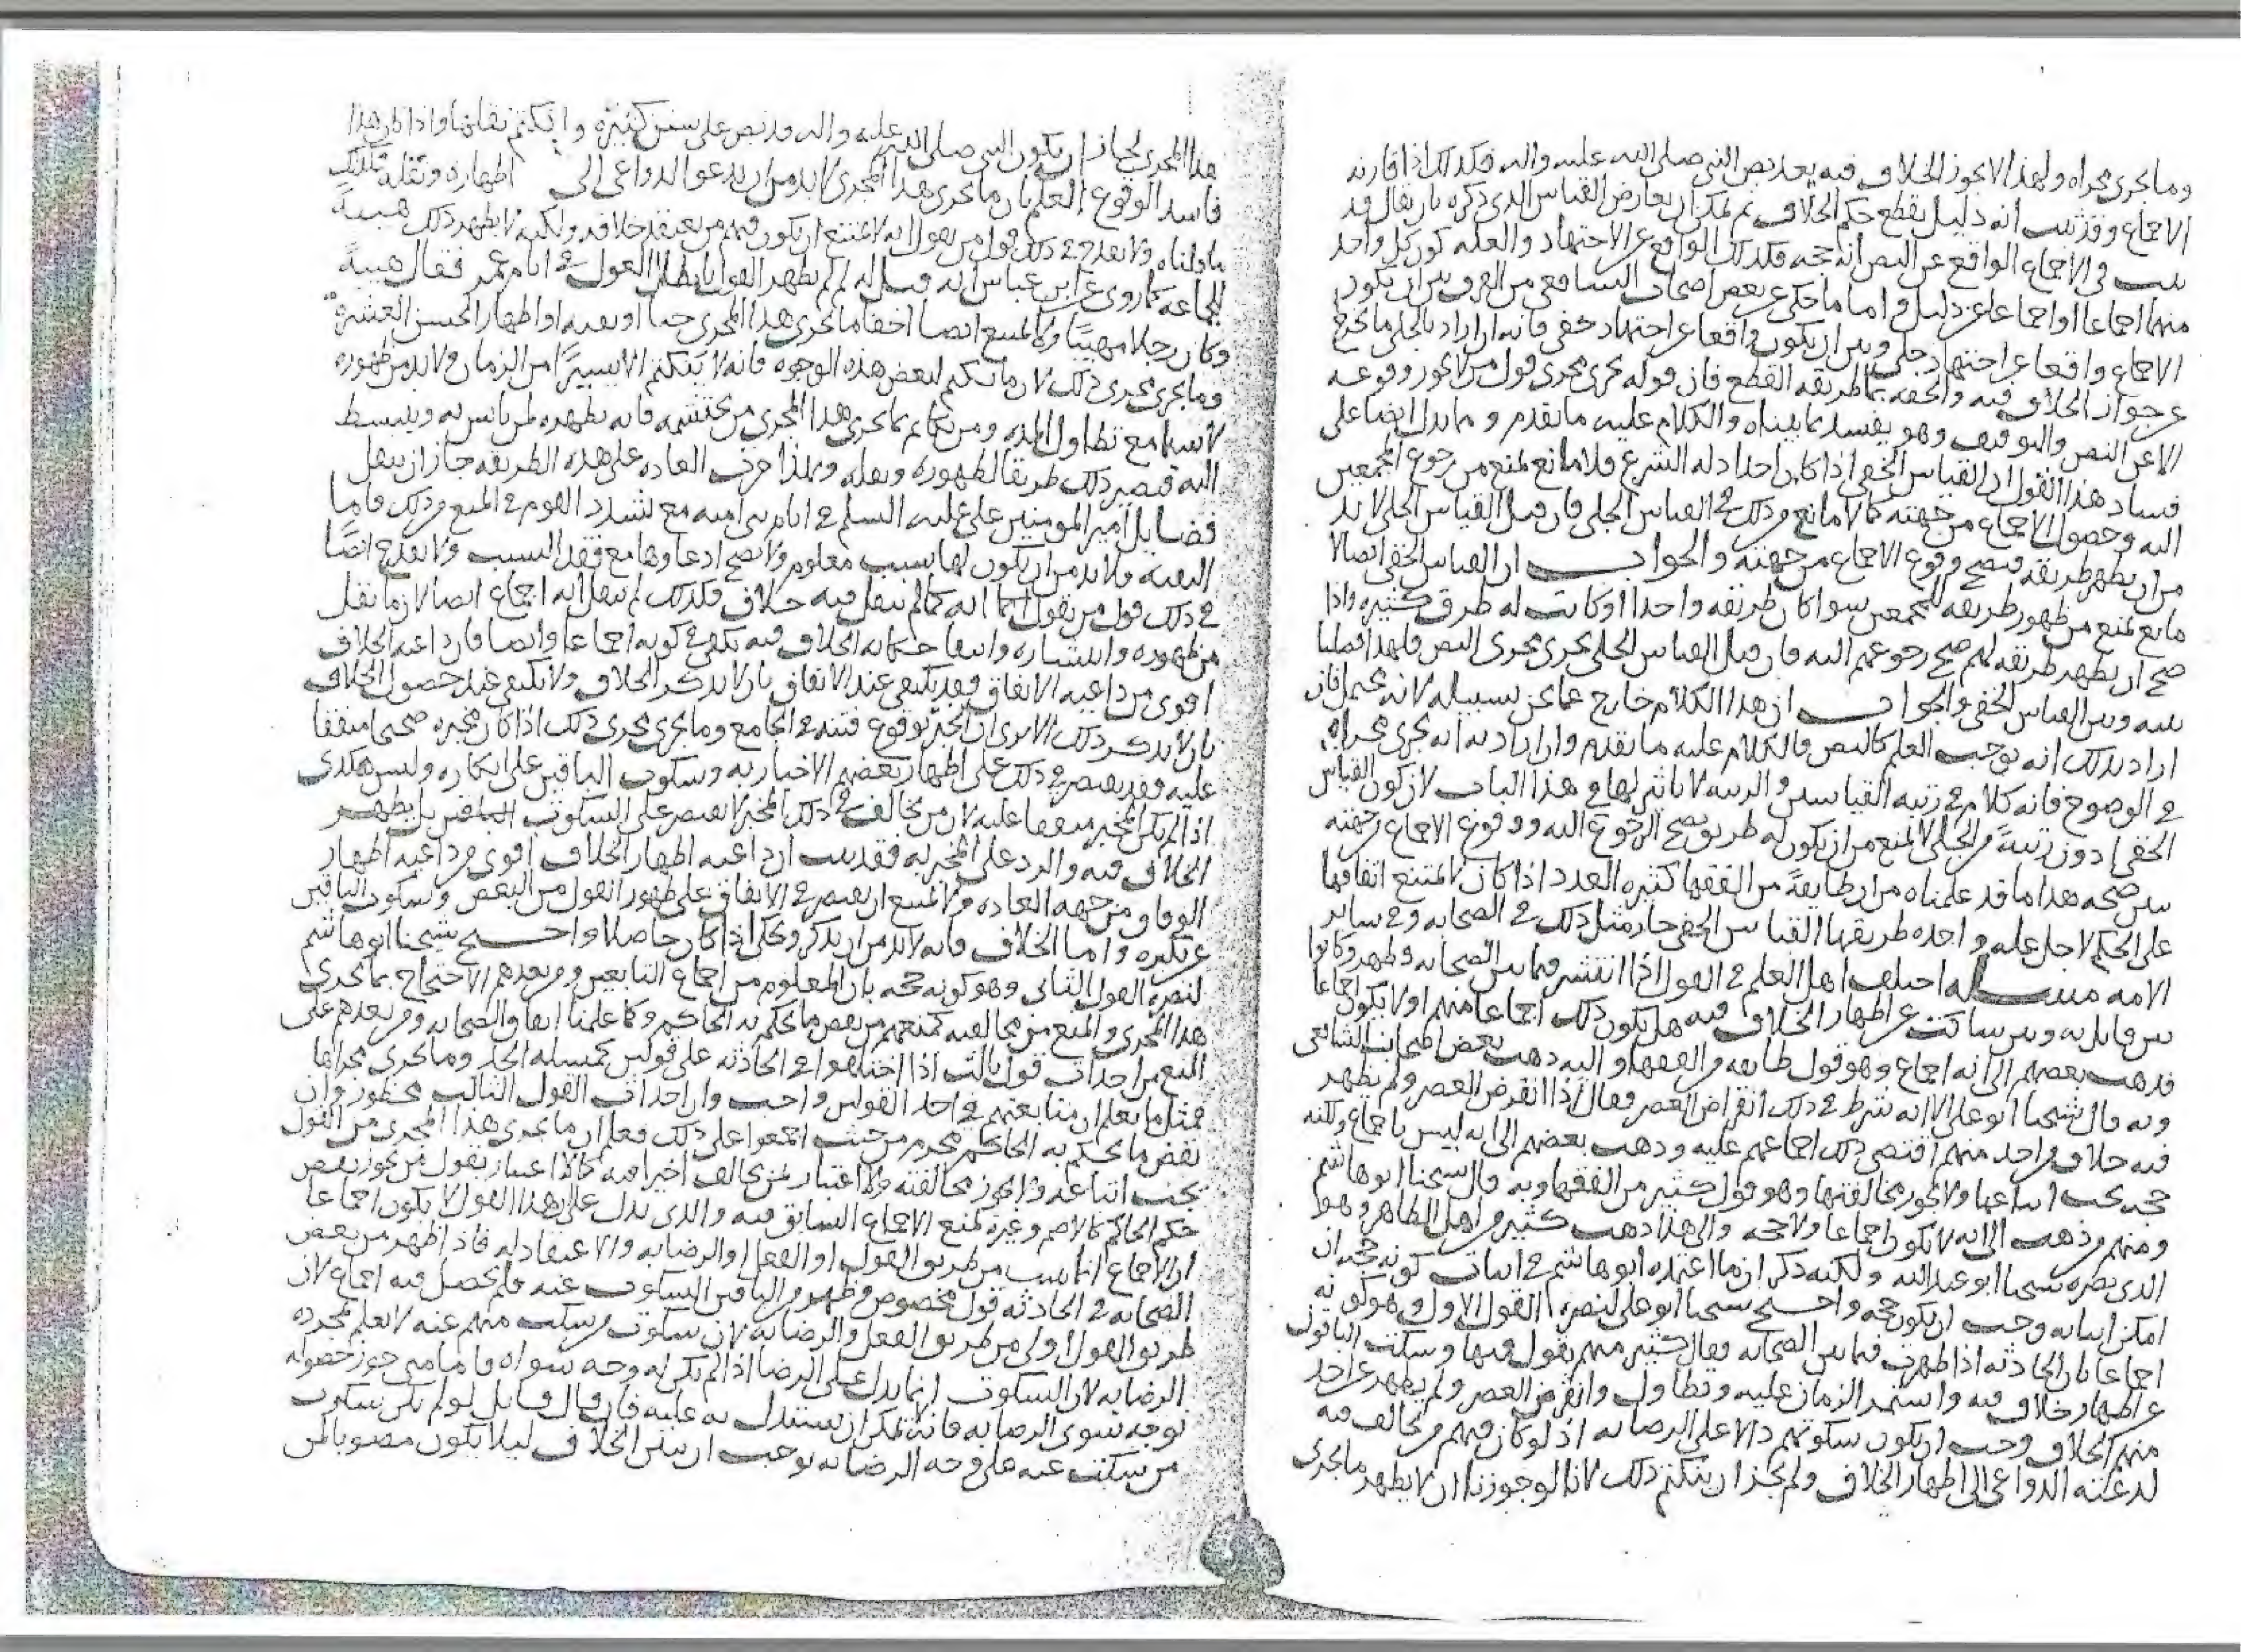 وما جرى مجراه ولهذا لا يجوز الخلاف فيه بعد نص النبي صلى الله عليه واله فكذلك اذا قارنه
الاجماع وقد ثبت انه دليل يقطع حكم الخلاف ثم يمكن ان يعارض القياس الذي ذكره بان يقال قد
ثبت في الاجماع الواقع عن النص انه حجه فكذلك الواقع عن الاجتهاد والعله كون كل واحد
منهما اجماعا او اجماعا عن دليل واما ما حكي عن بعض اصحاب الشافعي من الفرق بين ان يكون
الاجماع واقعا عن اجتهاد جلي وبين ان يكون واقعا عن اجتهاد خفي فانه ان اراد بالجلي ما يخرج
عن جواز الخلاف فيه والحقه بما طريقه القطع فان قوله يجري مجرى قول من لا يجوز وقوعه
الا عن النص والتوقيف وهو يفسد بما بيناه والكلام عليه ما تقدم ومما يدل ايضا على
فساد هذا القول ان القياس الخفي اذا كان احد ادله الشرع فلا مانع يمنع من رجوع المجمعين
اليه وحصول الاجماع من جهته كما لا مانع من ذلك في القياس الجلي فان قيل القياس الجلي لا بد
من ان يظهر طريقه فيصح وقوع الاجماع من جهته والجواب ان القياس الخفي ايضا لا
مانع يمنع من ظهور طريقه للمجمعين سوا كان طريقه واحدا او كانت له طرق كثيره واذا
صح ان يظهر طريقه لهم صح رجوعهم اليه فان قيل القياس الجلي يجري مجرى النص فلهذا فصلنا
بينه وبين القياس الخفي والجواب ان هذا الكلام خارج عما نحن بسبيله لانه فان
اراد بذلك انه يوجب العلم كالنص فالكلام عليه ما تقدم وان اراد به انه يجري مجراه
في الوضوح فانه كلام في رتبه القياسين والرتبه لا تاثير لها في هذا الباب لان كون القياس
الخفي ادون رتبةً من الجلي لا يمنع من ان يكون له طريق يصح الرجوع اليه ووقوع الاجماع من جهته
يبين صحه هذا ما قد علمناه من ان طايفةً من الفقها كثيره العدد اذا كان لا يمتنع اتفاقها
على الحكم لاجل عله واحده طريقها القياس الخفي جاز مثل ذلك في الصحابه وفي ساير
الامه مسله اختلف اهل العلم في القول اذا انتشر فيما بين الصحابه وظهر وكانوا
بين قايل به وبين ساكت عن اظهار الخلاف فيه هل يكون ذلك اجماعا منهم او لا يكون اجماعا
فذهب بعضهم الى انه اجماع وهو قول طايفه من الفقها واليه ذهب بعض اصحاب الشافعي
وبه قال شيخنا ابو علي الا انه شرط في ذلك انقراض العصر فقال اذا انقرض العصر ولم يظهر
فيه خلاف من احد منهم اقتضى ذلك اجماعهم عليه وذهب بعضهم الى انه ليس باجماع ولكنه
حجه يجب اتباعها ولا يجوز مخالفتها وهو قول كثير من الفقها وبه قال شيخنا ابو هاشم
ومنهم من ذهب الى انه لا يكون اجماعا ولا حجه والى هذا ذهب كثير من اهل الظاهر وهو
الذي نصره شيخنا ابو عبدالله ولكنه ذكر ان ما اعتمده ابو هاشم في اثبات كونه حجه ان
امكن اثباته وجب ان يكون حجه واحتج شيخنا ابو علي لنصره القول الاول وهو كونه
اجماعا بان الحادثه اذا ظهرت فيما بين الصحابه فقال كثير منهم بقول فيها وسكت الباقون
عن اظهار خلاف فيه واستمر الزمان عليه وتطاول وانقرض العصر ولم يظهر عن احد
منهم الخلاف وجب ان يكون سكوتهم دالا على الرضا به اذ لو كان فيهم من يخالف فيه
لدعته الدواعي الى اظهار الخلاف ولم يجز ان ينكتم ذلك لانا لو جوزنا ان لا يظهر ما جرى
هذا المجرى لجاز ان يكون النبي صلى الله عليه واله قد نص على سنن كثيره وانكتم نقلها واذا كان هذا
فاسد الوقوع العلم بان ما يجري هذا المجرى لا بد من ان يدعو الدواعي الى اظهاره ونقله فكذلك
ما قلناه ولا يقدح في ذلك قول من يقول انه لا يمتنع ان يكون فيهم من يعتقد خلافه ولكنه لا يظهر ذلك هيبةً
للجماعه كما روي عن ابن عباس انه قيل له لم لم تظهر القول بابطال العول في ايام عمر فقال هيبةً
وكان رجلا مهيبًا ولا يمتنع ايضا اخفا ما يجري هذا المجرى حبا او تقيه او اظهار الحسن العشرة
وما جرى مجرى ذلك لان ما ينكتم لبعض هذه الوجوه فانه لا ينكتم الا يسيرًا من الزمان ولا بد من ظهوره
لا سيما مع تطاول المده ومن يكاتم بما يجري هذا المجرى من يحتشمه فانه يظهره لمن يانس به وينبسط
اليه فيصير ذلك طريقا لظهوره ونقله ولهذا جرت العاده على هذه الطريقه جاز ان ينقل
فضايل امير المومنين علي عليه السلم في ايام بني اميه مع تشدد القوم في المنع من ذلك فاما
التقيه فلا بد من ان يكون لها سبب معلوم ولا يصح ادعاوها مع فقد السبب ولا يقدح ايضًا
في ذلك قول من يقول انما انه كما لم ينقل فيه خلاف فكذلك لم ينقل انه اجماع ايضا لان ما نقل
من ظهوره وانتشاره وانتفا حكايه الخلاف فيه يكفي في كونه اجماعا وايضا فان داعيه الخلاف
اقوى من داعيه الاتفاق فقد يكتفى عند الاتفاق بان لا يذكر الخلاف ولا يكتفى عند حصول الخلاف
بان لا يذكر ذلك الا ترى ان المخبر بوقوع فتنه في الجامع وما يجري مجرى ذلك اذا كان مخبره صحيحا متفقا
عليه فقد يقتصر في ذلك على اظهار بعضهم الاخبار به وسكوت الباقين على انكاره وليس هكذى
اذا لم يكن المخبر متفقا عليه لان من يخالف في ذلك المخبر لا يقتصر على السكوت بل يظهر
الخلاف فيه والرد على المخبر به فقد ثبت ان داعيه اظهار الخلاف اقوى من داعيه اظهار
الوفاق من جهه العاده ولا يمتنع ان يقتصر في الاتفاق على ظهور القول من البعض وسكوت الباقين
عن نكيره واما الخلاف فانه لا بد من ان يذكر ويحكى اذا كان حاصلا واحتج شيخنا ابو هاشم
لنصره القول الثاني وهو كونه حجه بان المعلوم من اجماع التابعين ومن بعدهم الاحتجاج بما يجري
هذا المجرى والمنع من مخالفته كمنعهم من نقض ما يحكم به الحاكم وكما علمنا اتفاق الصحابه ومن بعدهم على
المنع من احداث قول ثالث اذا اختلفوا في الحادثه على قولين كمسله الجد وما يجري مجراها
فمثل ما يعلم ان متابعتهم في احد القولين واجب وان احداث القول الثالث محظور وان
نقض ما يحكم به الحاكم محرم من حيث اجمعوا على ذلك فعلم ان ما يجري هذا المجرى من القول
يجب اتباعه ولا يجوز مخالفته ولا اعتبار بمن يخالف اخيرا فيه كما لا اعتبار بقول من يجوز نقض
حكم الحاكم كالاصم وغيره لمنع الاجماع السابق فيه والذي يدل على ان هذا القول لا يكون اجماعا
ان الاجماع انما يثبت من طريق القول او الفعل او الرضا به والاعتقاد له فاذا ظهر من بعض
الصحابه في الحادثه قول مخصوص وظهر من الباقين السكوت عنه فلم يحصل فيه اجماع لان
طريق القول ولا من طريق الفعل والرضا به لان سكوت من سكت منهم عنه لا يعلم بمجرده
الرضا به لان السكوت انما يدل على الرضا اذا لم يكن له وجه سواه فاما متى جوز حصوله
لوجه سوى الرضا به فانه لا يمكن ان يستدل به عليه فان قال قايل لو لم يكن سكوت
من سكت عنه على وجه الرضا به لوجب ان ينكر الخلاف ليلا يكون مصوبا لمن